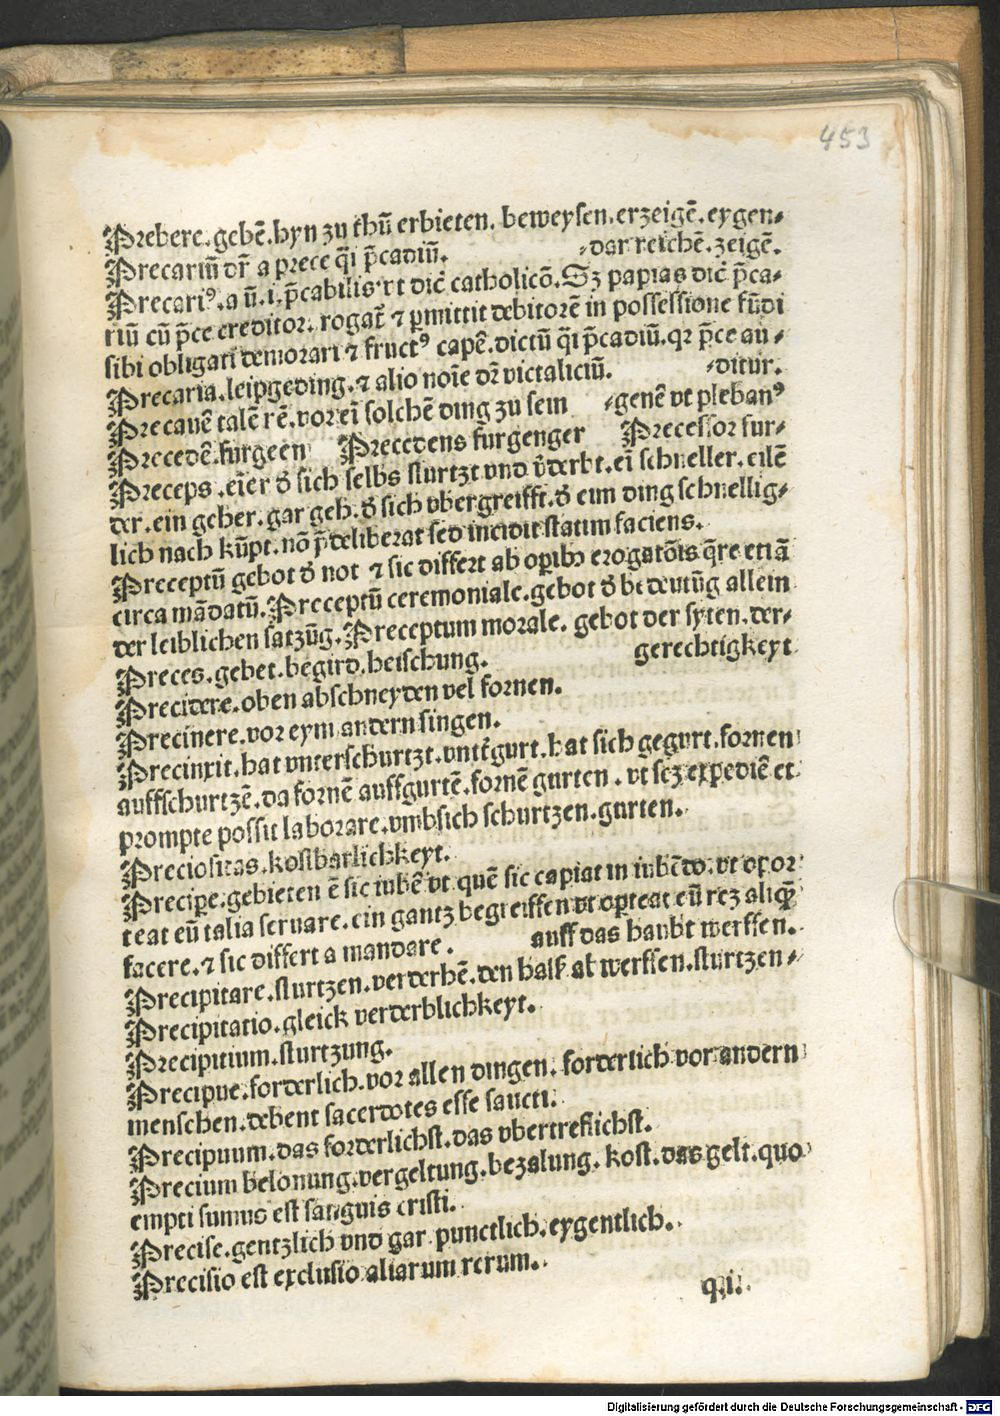 453
Prebere.gebē.hyn zu thū erbieten. beweysen.erzeigē.eygen⸗
Precariū dr̄ a prece q̄i p̄cadiū. ⸗dar reichē.zeigē.
Precariꝰ.a ū.i.p̄cabilis.vt dic̄ catholicō.Sꝫ papias dic̄ p̄ca⸗
riū cū p̄ce creditor. rogat̄ ⁊ ꝑmittit debitorē in possessione fūdi
sibi obligati demorari ⁊ fructꝰ capē.dictū q̄i p̄cadiū.qꝛ p̄ce au⸗
Precaria.leipgeding.⁊ alio noīe dꝛ̄ victaliciū. ⸗ditur.
Precauē talē rē.vor eī solchē ding zu sein ⸗genē vt plebanꝰ
Precedē.furgeen Precedens furgenger Precessor fur⸗
Preceps.eīer ď sich selbs sturtzt vnd v̄derbt.eī schneller.eilē
der.ein geher.gar geh.ď sich vbergreifft.ď eim ding schnellig⸗
lich nach kūpt.nō p̄deliberat sed incidit statim faciens.
Preceptū gebot ď not ⁊ sic differt ab oꝑibꝰ erogatōis q̄re etiā
circa mādatū.Preceptū ceremoniale.gebot ď bedeutūg allein
der leiblichen satzūg.Preceptum morale. gebot der syten.der⸗
Preces.gebet.begird.heischung. gerechtigkeyt
Precidere.oben abschneyden vel fornen.
Precinere.vor eym andern singen.
Precinxit.hat vnterschurtzt.vnt̄gurt.hat sich gegurt.fornen
auffschurtzē.da fornē auffgurtē.fornē gurten. vt seꝫ expediē et
prompte possit laborare.vmbsich schurtzen.gurten.
Preciositas.kostbarlichkeyt.
Precipe.gebieten ē sic iubē vt quē sic capiat in iubēdo.vt opor
teat eū talia seruare.ein gantz begreiffen vt oꝑteat eū reꝫ aliq̄ꝫ
facere.⁊ sic differt a mandare. auff das haubt werffen.
Precipitare.sturtzen.verderbē.den halß ab werffen.sturtzen⸗
Precipitatio.gleick verderblichkeyt.
Precipitium.sturtzung.
Precipue.forderlich.vor allen dingen. forderlich vor andern
menschen.debent sacerdotes esse sancti.
Precipuum.das forderlichst.das vbertreflichst.
Precium belonung.vergeltung.bezalung. kost.das gelt.quo
empti sumus est sanguis cristi.
Precise.gentzlich vnd gar punctlich.eygentlich.
Precisio est exclusio aliarum rerum.
q.i.
Digitalisierung gefördert durch die Deutsche Forschungsgemeinschaft - DFG